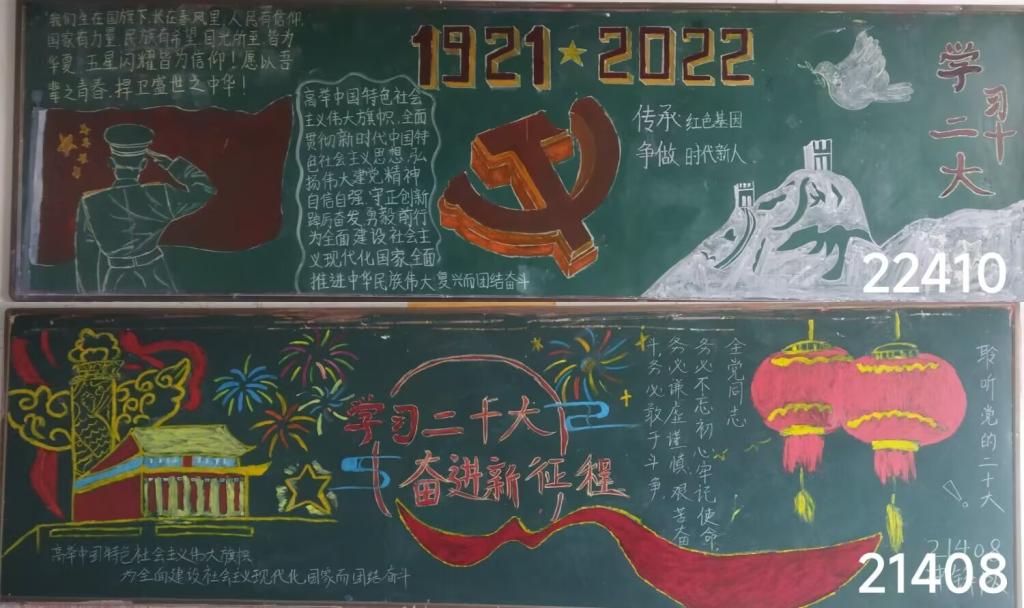 我们生在国旗下,长在春风里,人民有信仰,
国家有力量,民族有希望,目光所至皆为
华夏,五星闪耀皆为信仰!愿以吾
辈之青春,捍卫盛世之中华!
高举中国特色社会
主义伟大旗帜,全面
贯彻新时代中国特
色社会主义思想,弘
扬伟大建党精神
自信自强、守正创新
踔厉奋发、勇毅前行
为全面建设社会主
义现代化国家、全面
推进中华民族伟大复兴而团结奋斗
1921★2022
传承 红色基因
争做 时代新人
学习二十大
22410
学习二十大
奋进新征程
高举中国特色社会主义伟大旗帜
为全面建设社会主义现代化国家而团结奋斗
全党同志
务必不忘初心牢记使命,
务必谦虚谨慎、艰苦奋
斗,务必敢于斗争,
聆听党的二十大
21408
21408